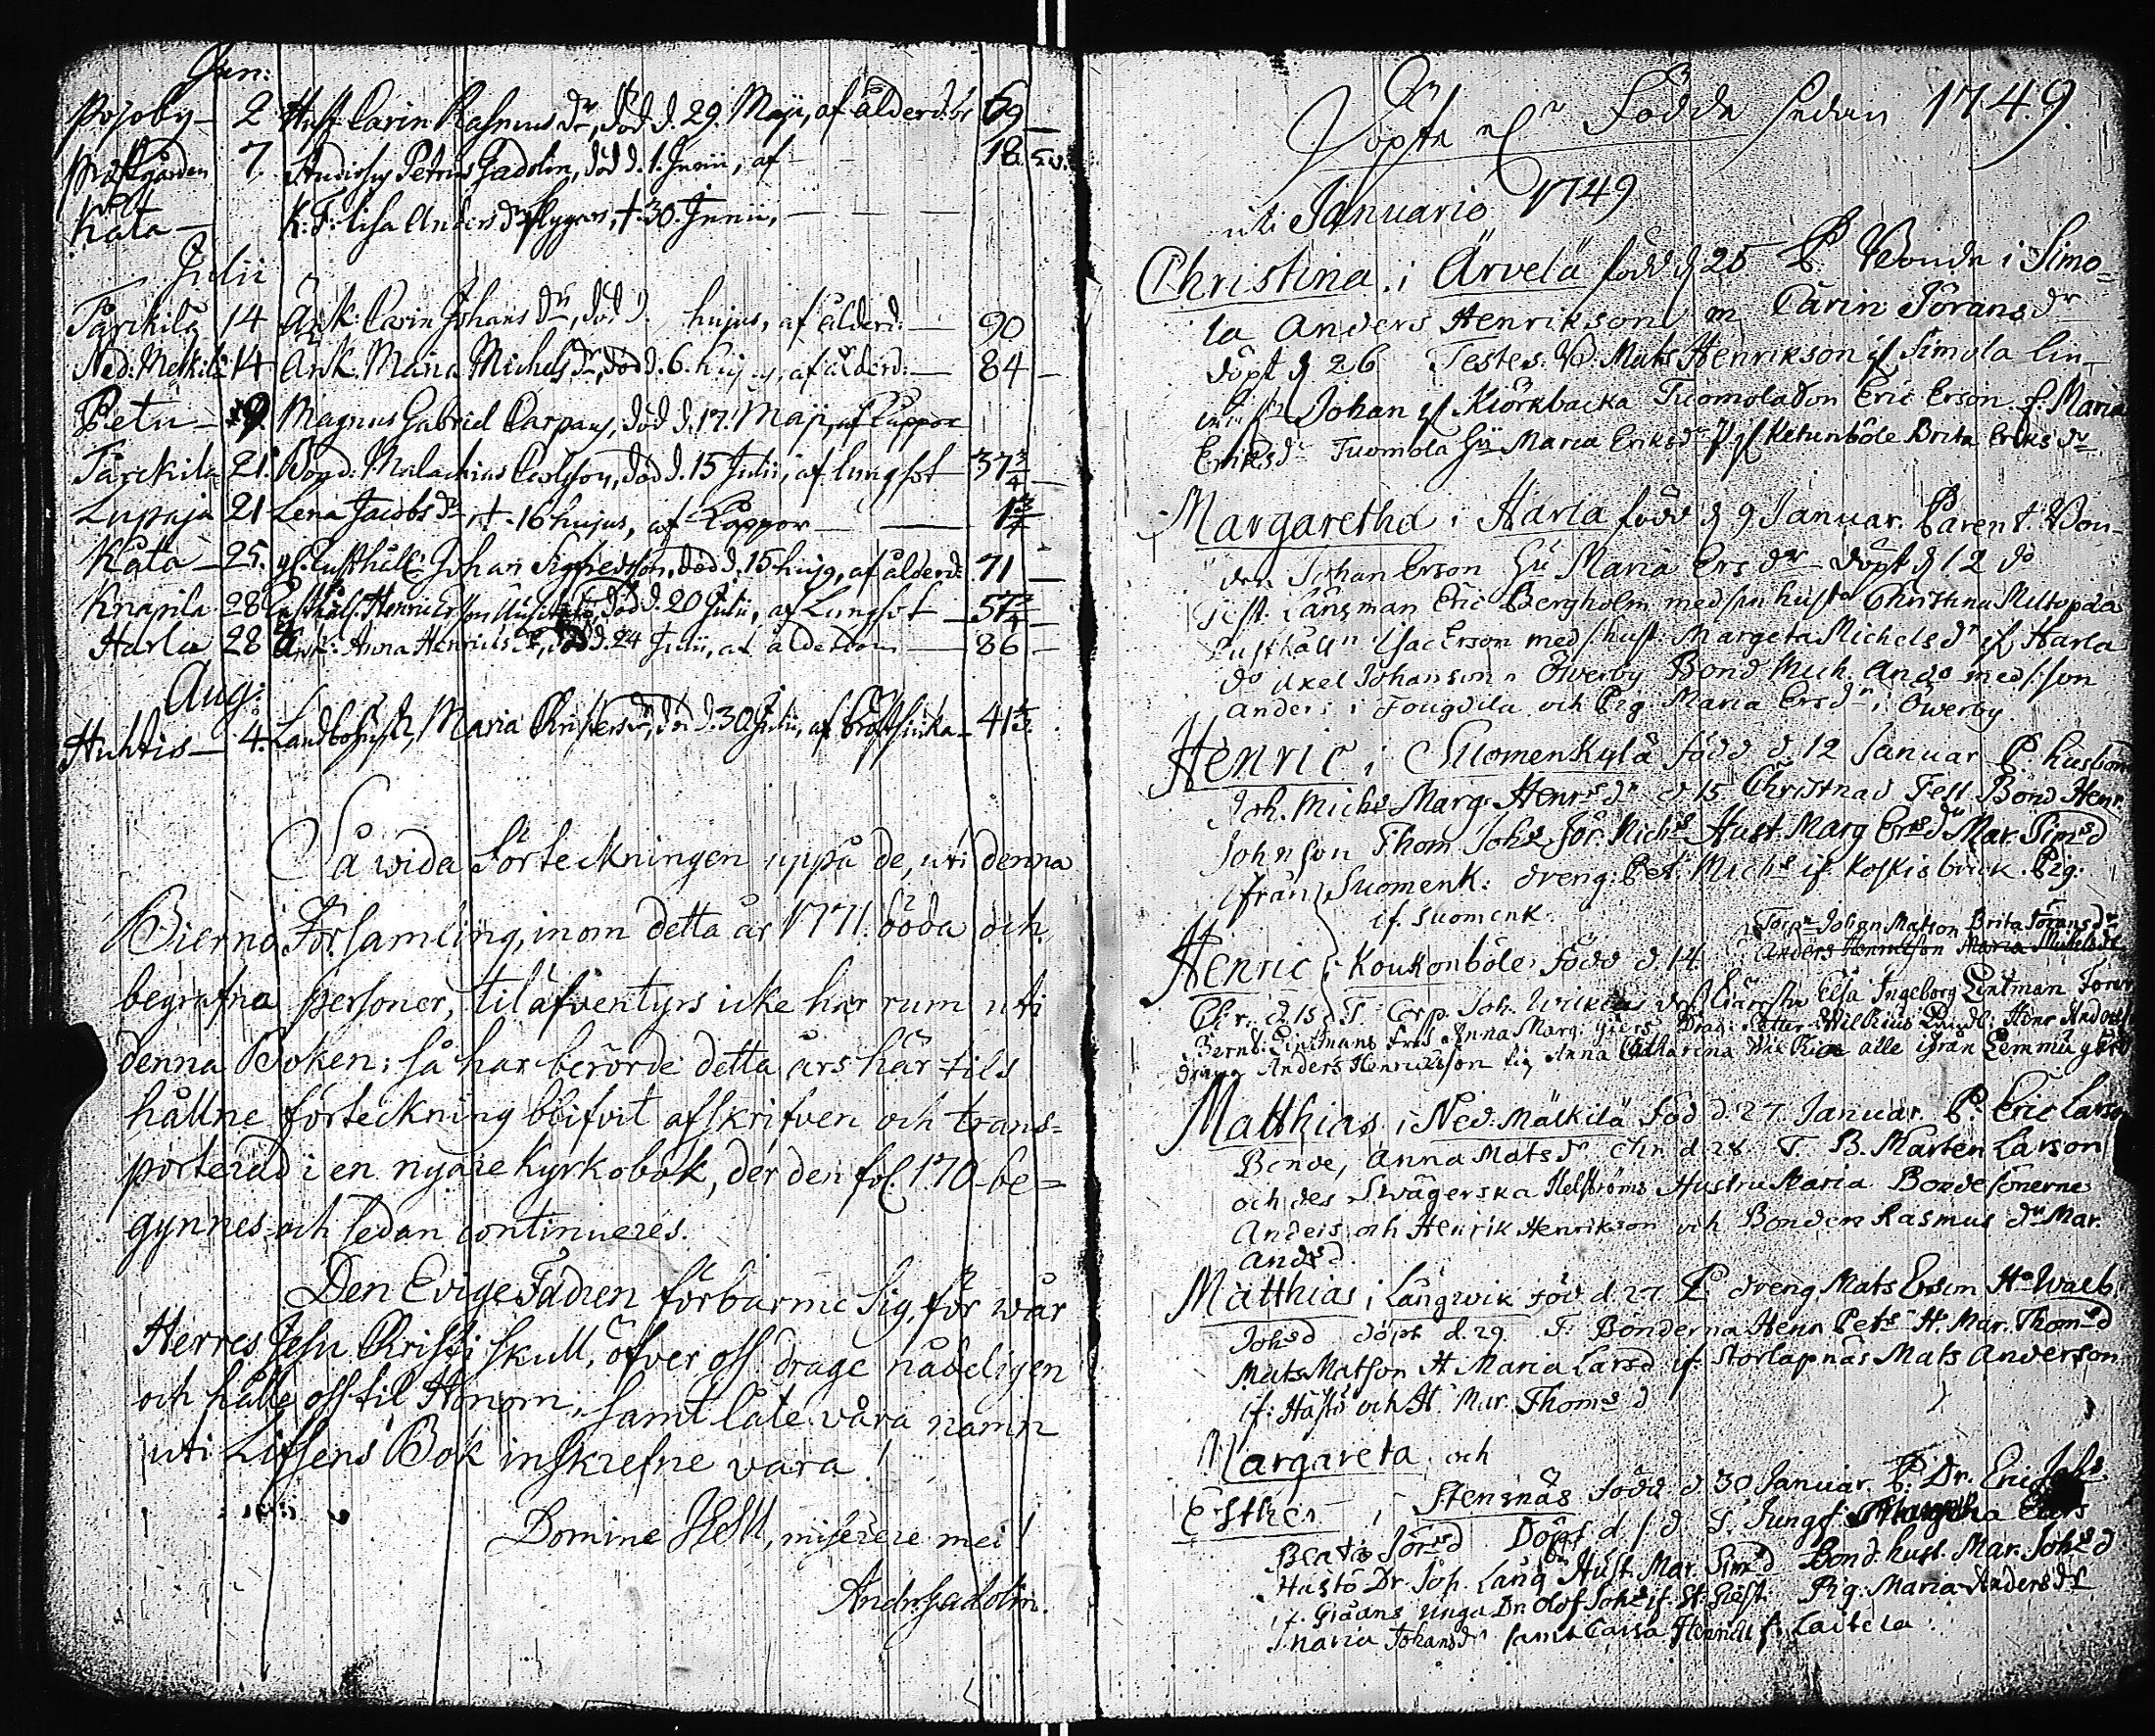 Jun:
Pojoby — 2 Hust. Carin Rasmus dr, död d. 29. Maji, af ålderd. 69 —
Prästgården 7. Studiosus Petrus Gadolin, död d. 1. Junii, af — 18
Kåta — K. F. Lisa Anders dr flygare, † 30. Junii, — — —
Julii
Tärckilä 14 Änk: Carin Johans dr, död d. hujus, af ålderd. — 90
Ned: Melkilä 14 Änk. Maria Michels dr, död d. 6. hujus, af ålderd: — 84 —
Petu — 19. Magnus Gabriel Carpaus, död d. 17. Maji, af kåppor
Tärckilä 21. Bond: Malachias Carlsson, död d. 15 Julii, af lungsot — 37 3/4 —
Lupaja 21 Lena Jacobs dr † 16 hujus, af kåppor — — 1 3/4
Kåta — 25. gl. Rusthåll: Johan Sigfredsson, död d. 15 hujus, af ålderd: 71 —
Knapila 28 Rusthåll. Henric Ersson död d. 20 Julii, af Lungsot — 57 3/4 —
Harla 28 Änk: Anna Henrics dr, död d. 24 Julii, af ålderdom — 86 —
Aug:
Huhtis — 4. Landbohust. Maria Christers dr, död d. 30 Julii, af bröstsiuka — 41 1/2.
Så wida förteckningen uppå de, uti denna
Bierno Församling, inom detta år 1771. döda och
begrafna personer, til äfventyrs icke har rum uti
denna Boken: så har berörde detta års här-tils
hållne förteckning blifvit afskrifven och trans=
porterad i en nyare kyrkobok, der den fol. 170 be=
gynnes och sedan continueres.
Den Evige Fadren förbarme sig, för wår
Herres Jesu Christi skull, öfver oss drage nådeligen
och hålle oss til Honom, samt låte våra namn
uti Lifsens Bok inskrefne vara!
Domine JESU, miserere mei!
Andr. Gadolin.
Döpta och Födda sedan 1749.
uti Januario 1749
Christina i Ärvelä född d 25 P. Bonde i Simo=
la Anders Henrikson m Carin Jörans dr
döpt d 26 Testes. B: Mats Henrikson if Simola
Johan if Kiörkbacka Tuomola Son Eric Erson. f. Maria
Eriks dr Tuomola Maria Eriks dr if Ketunböle Brita Eriks dr
Margaretha i Harla född d 9 Januar. Parent. Bon-
den Johan Erson Hu Maria Ers dr döpt d 12 do
Test. Länsman Eric Bergholm med sin hustr Christina Meltopæa
Rusthålln Isac Erson med s. hust. Margeta Michels dr if Harla
do Axel Johanson i Öwerby Bond Mich. Ands med s: son
Anders i Fougdila och Pig Maria Ers dr i Öwerby
Henric i Suomenkylä född d 12 Januar P. husbond
Joh. Michs Marg. Henrs dr d 15 Christnad Test Bond Henr.
Johnson Thom Johs Jör. Michs Hust. Marg Ers dr Mar. Sims d
ifrån Suomenk: dreng: Pet: Michs if. Koskis brick. Pig.
if. Suomenk.
Henric i Koukonböle född d. 14. Torp Johan Matson Brita Jörans dr
Anders Henricson Maria Michels dr
Chr. d. 15 d T. Corp. Joh. Wilkius Elsa Ingeborg Lintman
Bernt: Lintmans Anna Marg: Petter Wilkius Henr Anders
dreng Anders Henricsson Pig Anna Catharina Wilkiæ alle ifrån Lemmu gård
Matthias i Ned. Mälkilä föd d 27 Januar. P. Eric Larson
Bonde, Anna Mats dr Chr. d 28 T. B. Mårten Larson
och des Swägerska Helströms Hustru Maria Bonde sönerne
Anders och Henrik Henrikson och Bonden Rasmus dr Mar.
Ands d.
Matthias i Långwik föd d 27 P. dreng Mats Erson Ho Walb.
Johs d döpt d. 29 T: Bönderna Henr Pets H. Mar. Thoms d
Mats Matson H Maria Lars d if: Storlapnäs Mats Anderson
if: Hästö och H Mar. Thoms d
Margareta och
Esther i Stensnäs född d 30 Januar. P. Dr. Eric Johs
Beata Jörs d Döpt d. 1 d. T. Jungf.
Hästö Dr. Joh. Lång Hust. Mar. Sims d Bond. hust. Mar. Johs d
if. Giäddns unga Dr. Olof Johs if. Pig. Maria Anders dr
Maria Johans dr samt Carsa Henrics fr. Caitela.